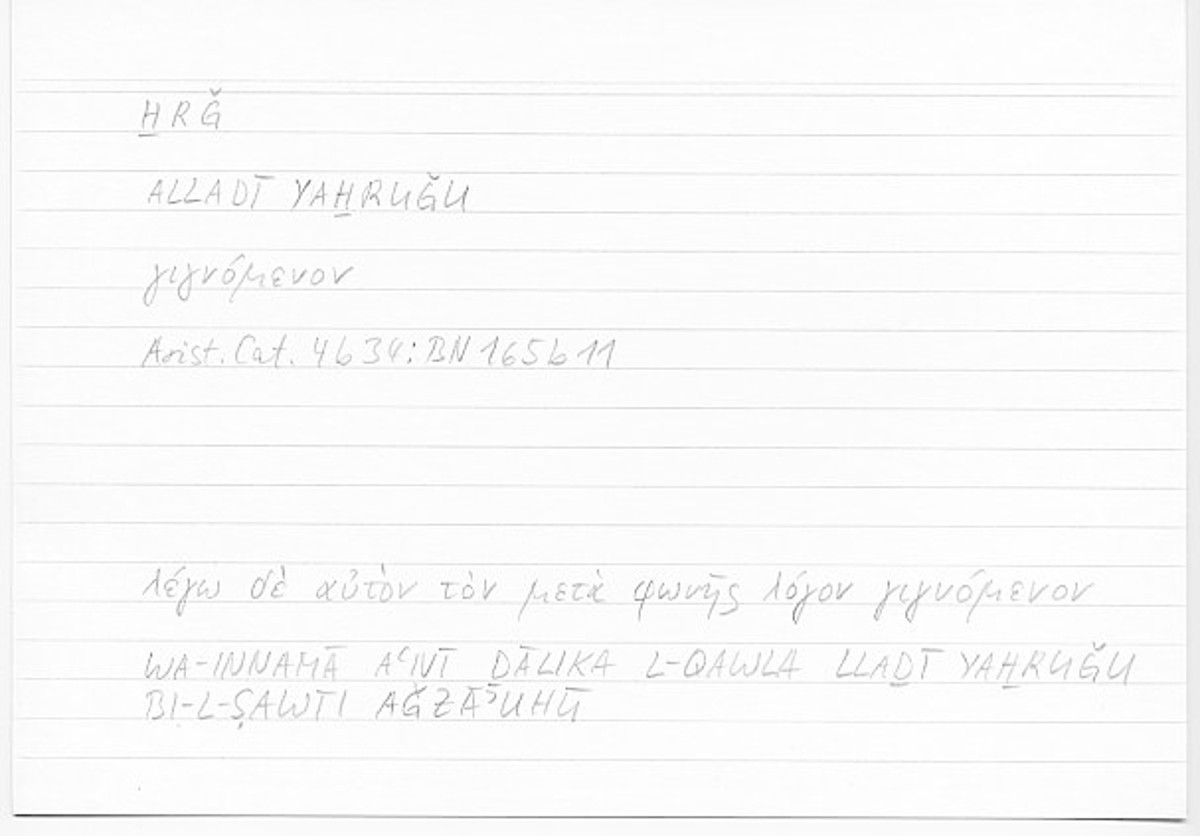 H̱RǦ
ALLADĪ YAH̱RUǦU
γιγνόμενον
Arist. Cat. 4b34: BN 165b11
λέγω δὲ αὐτὸν τὸν μετὰ φωνῆς λόγον γιγνόμενον
WA-INNAMĀ AʿNĪ ḎĀLIKA L-QAWLA LLAḎĪ YAH̱RUǦU
BI-L-ṢAWTI AǦZĀʾUHŪ